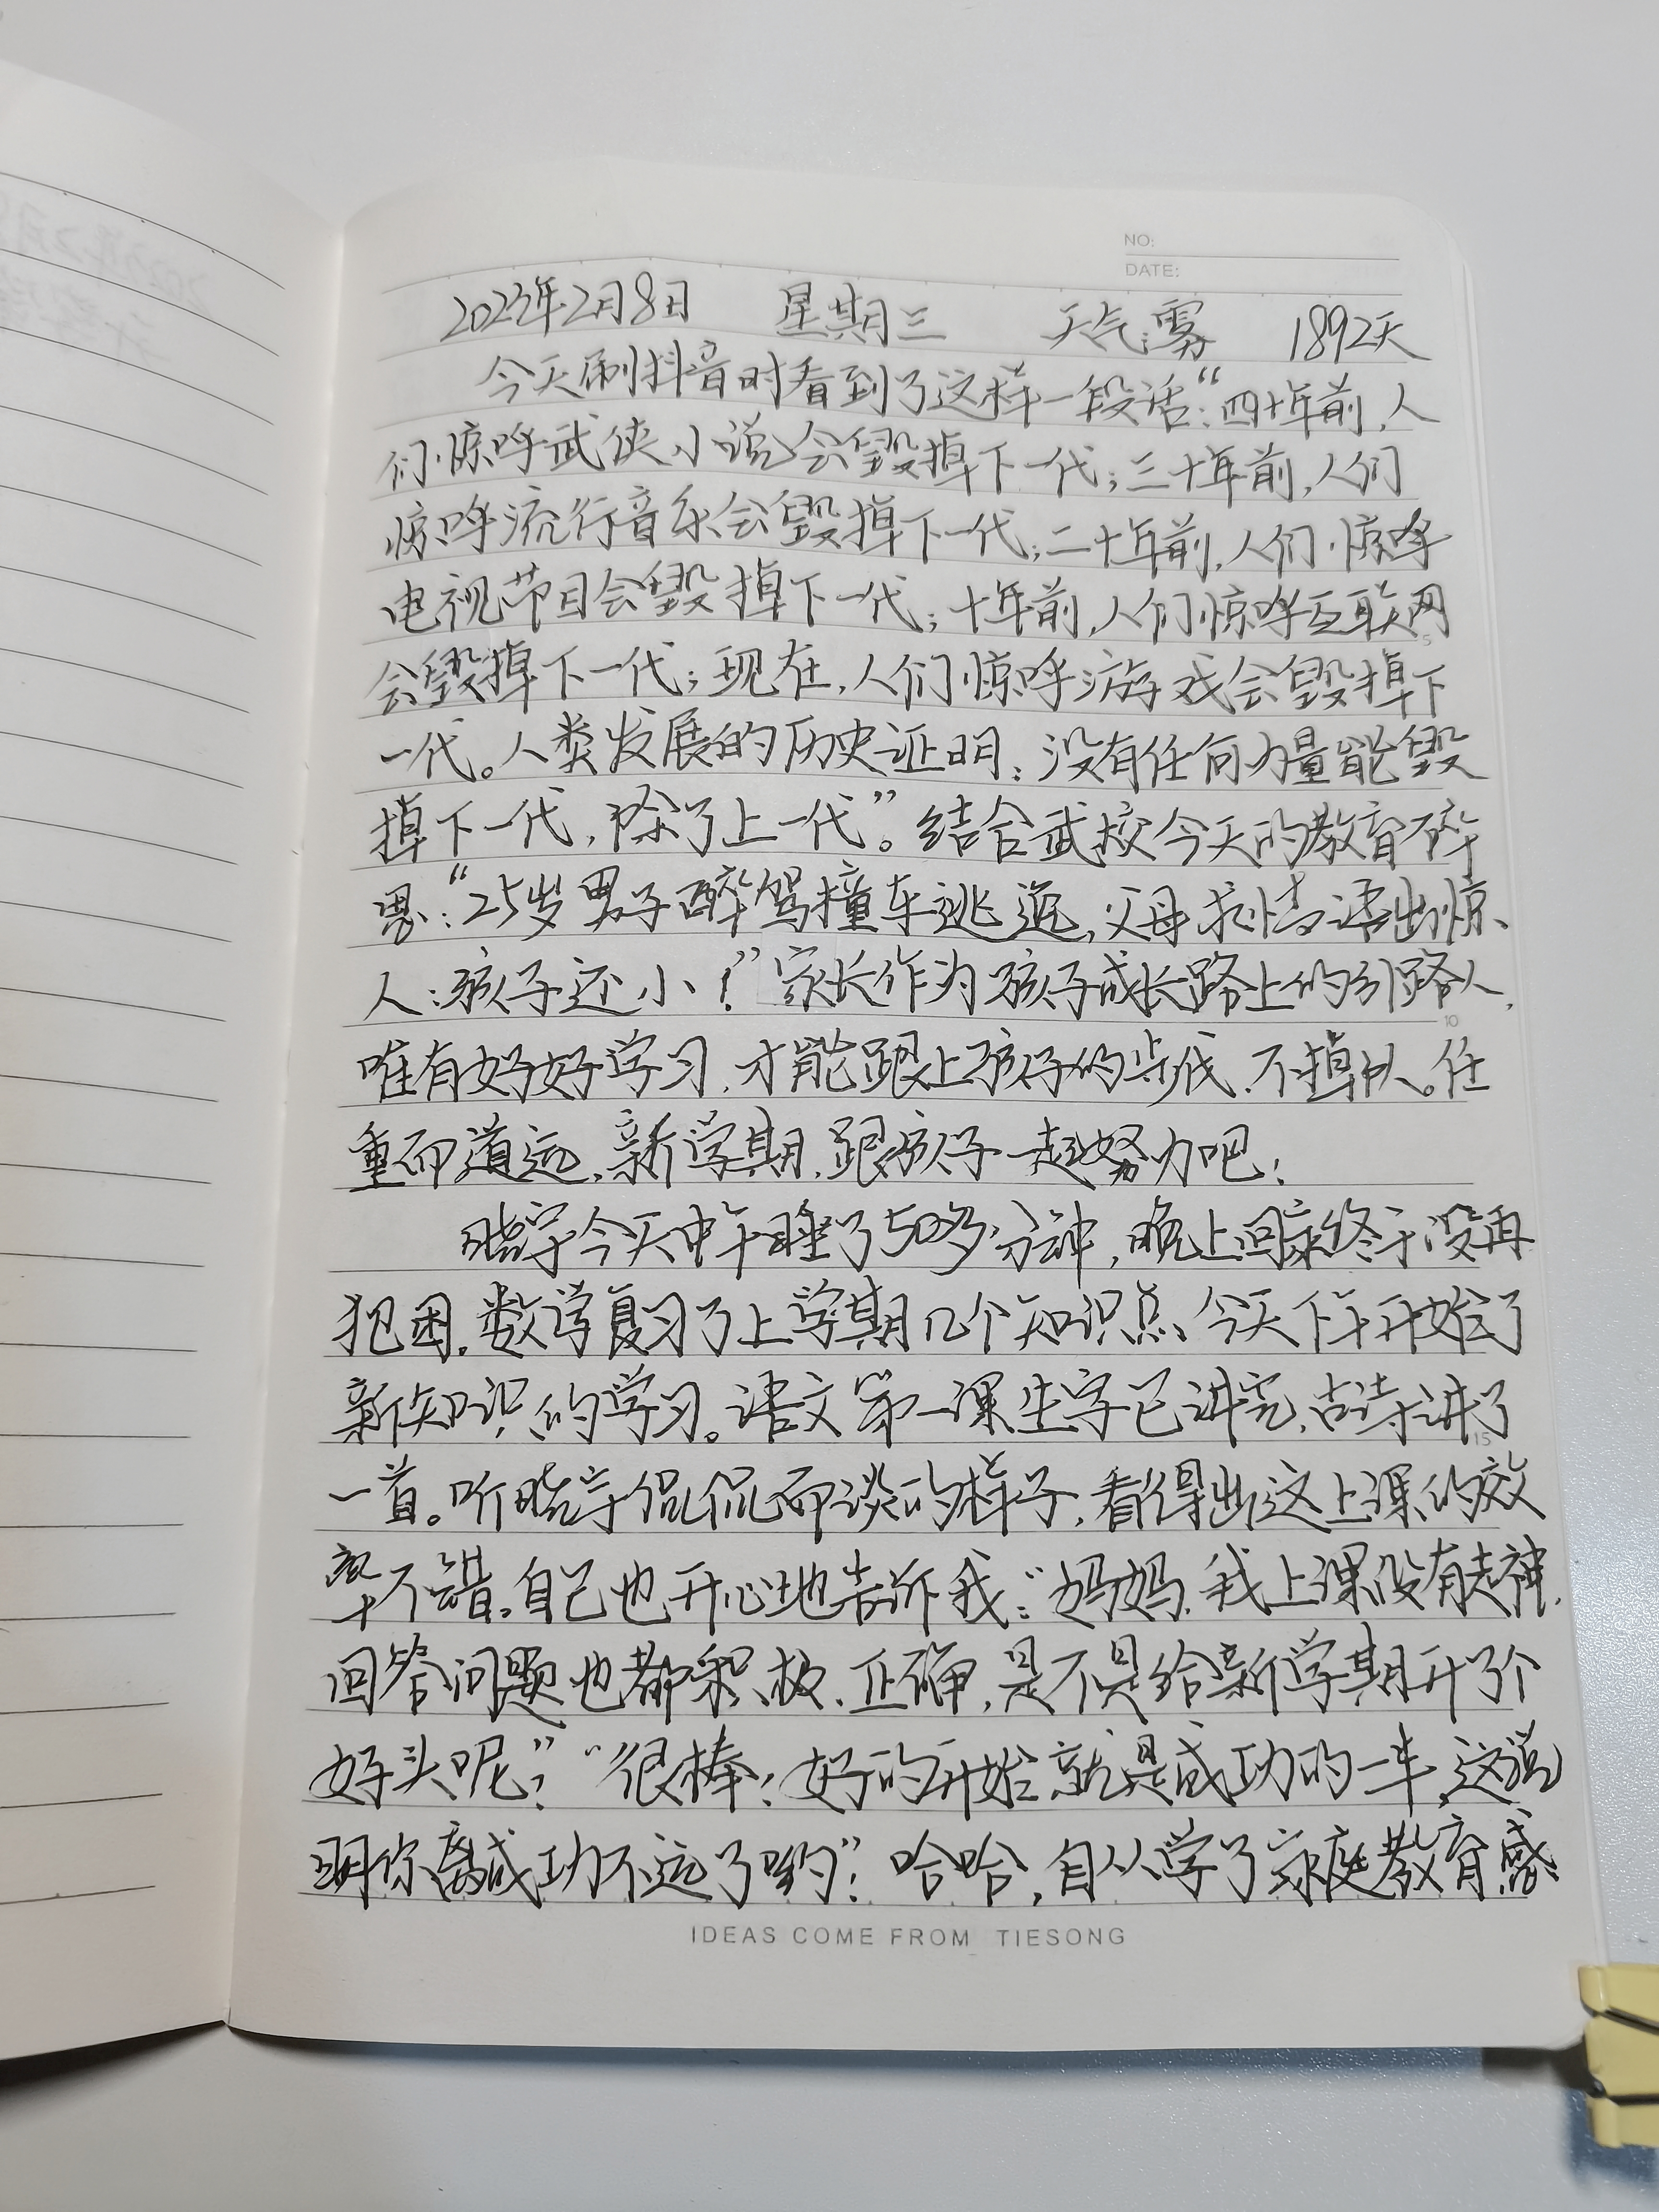 NO:
DATE:
2023年2月8日 星期三 天气:雾 1892天
今天刷抖音时看到了这样一段话:“四十年前,人
们惊呼武侠小说会毁掉下一代;三十年前,人们
惊呼流行音乐会毁掉下一代;二十年前,人们惊呼
电视节目会毁掉下一代;十年前,人们惊呼互联网
会毁掉下一代;现在,人们惊呼游戏会毁掉下
一代。人类发展的历史证明:没有任何力量能毁
掉下一代,除了上一代”。结合武校今天的教育碎
思:“25岁男子醉驾撞车逃逸,父母求情语出惊
人:孩子还小!”家长作为孩子成长路上的引路人,
唯有好好学习,才能跟上孩子的步伐,不掉队。任
重而道远,新学期,跟孩子一起努力吧!
晓宇今天中午睡了50多分钟,晚上回家终于没再
犯困,数学复习了上学期几个知识点,今天下午开始了
新知识的学习。语文第一课生字已讲完,古诗讲了
一首。听晓宇侃侃而谈的样子,看得出这上课的效
率不错。自己也开心地告诉我:“妈妈,我上课没有走神,
回答问题也都积极、正确,是不是给新学期开了个
好头呢?”“很棒!好的开始就是成功的一半,这说
明你离成功不远了哟”!哈哈,自从学了家庭教育,感
5
10
15
IDEAS COME FROM TIESONG